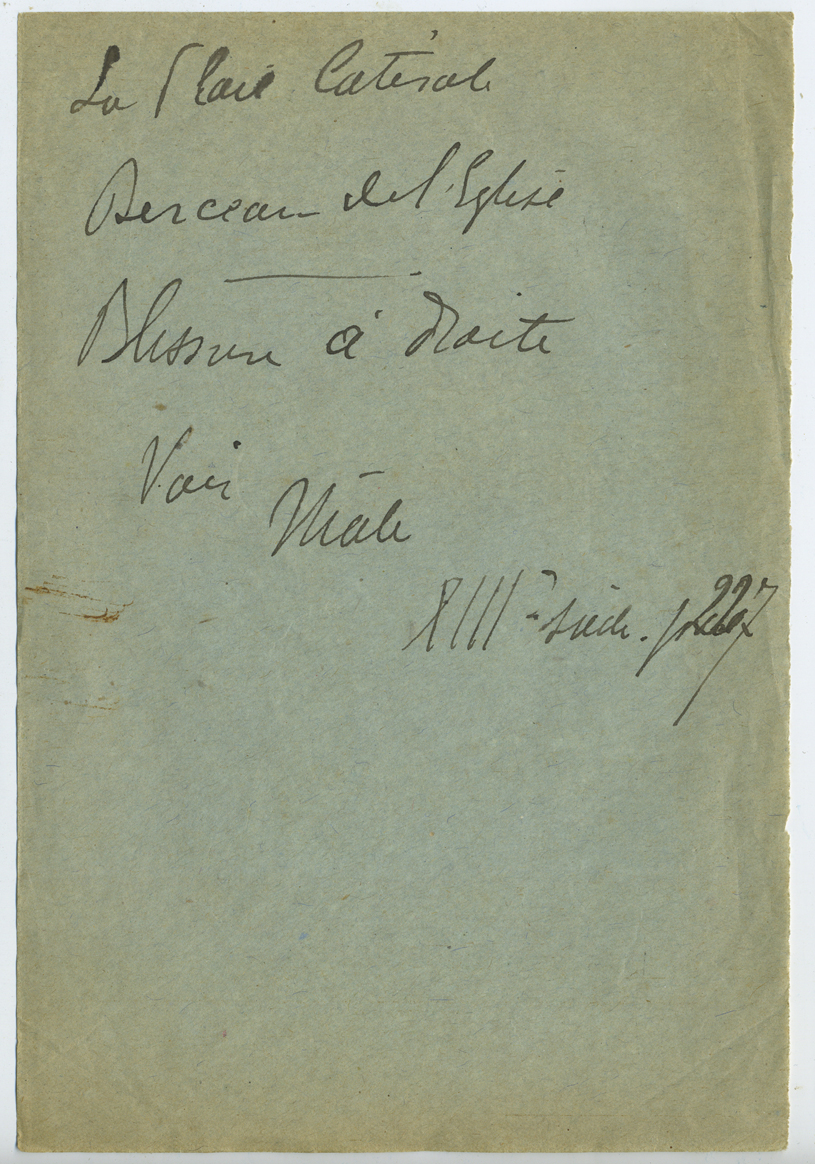 La Plaie Latérale
Berceau de l'Eglise
Blessure à droite
Voir
Mâle
XIIIe siècle. p. 227